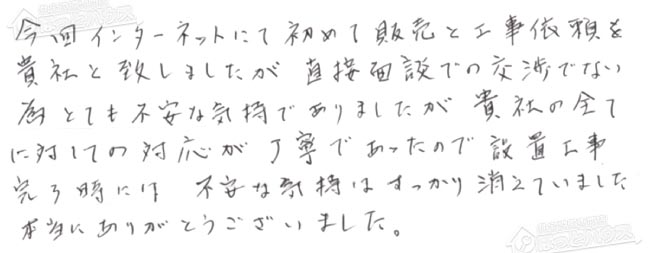 今回インターネットにて初めて販売と工事依頼を
貴社と致しましたが 直接面談での交渉でない
為とても不安な気持でありましたが 貴社の全て
に対しての対応が丁寧であったので設置工事
完了時には 不安な気持はすっかり消えていました
本当にありがとうございました。